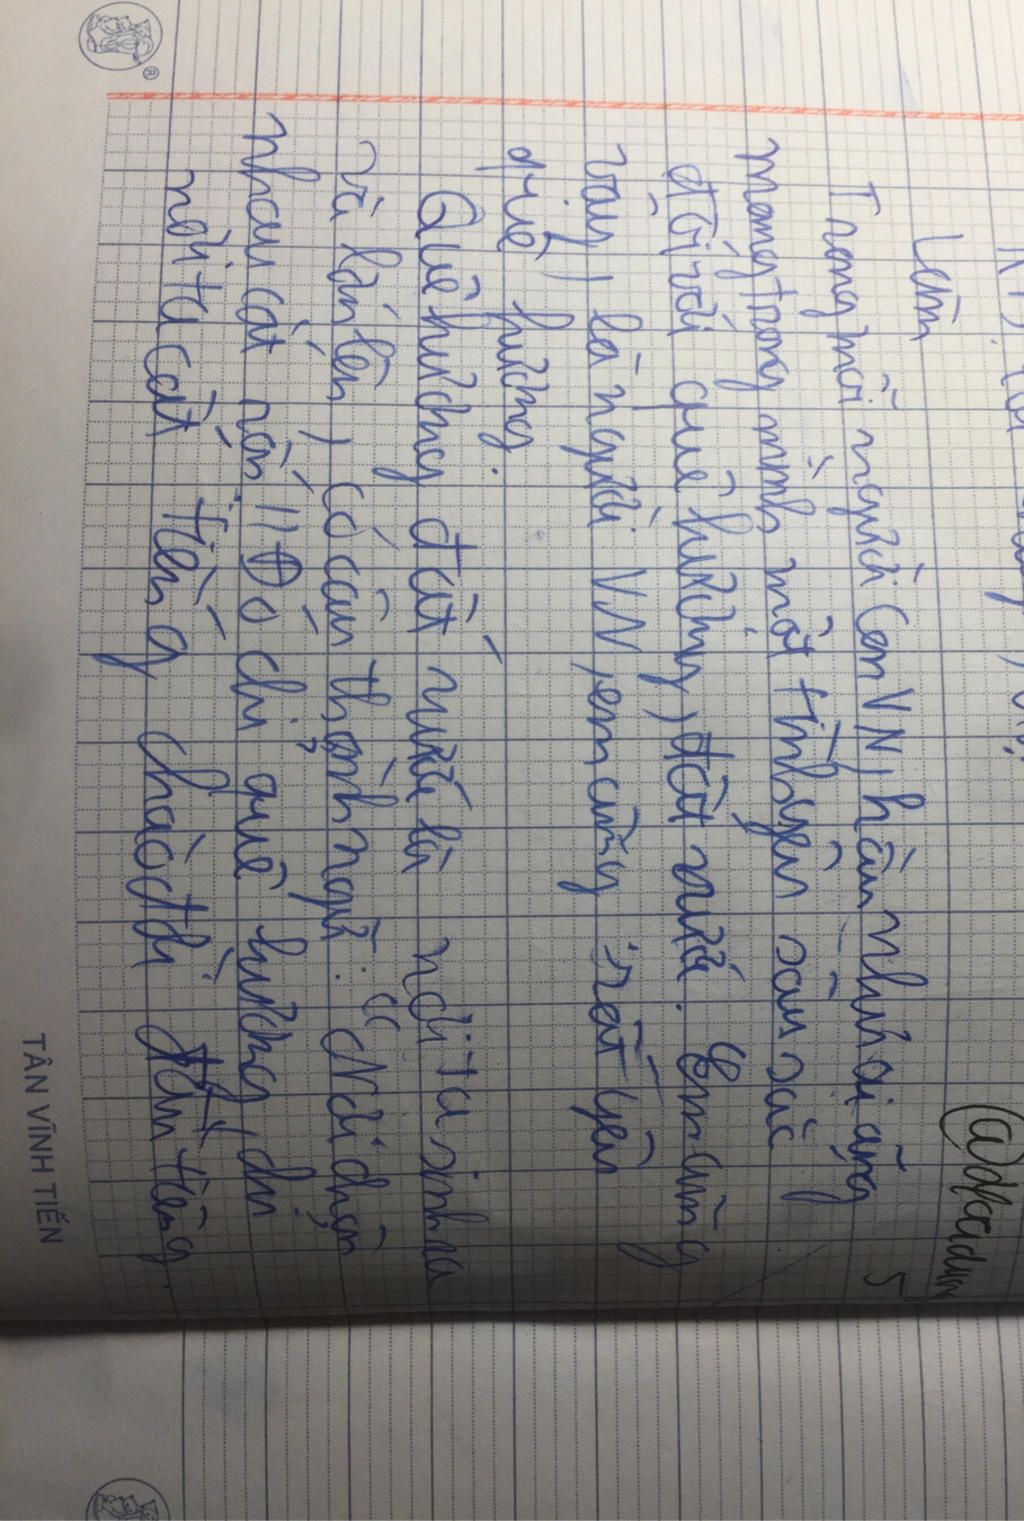 Làm
Trong mỗi người con VN, hầu như ai cũng
mang trong mình một tình yêu sâu sắc
đối với quê hương, đất nước. Em cũng
vậy, là người VN, em cũng rất yêu
quê hương.
Quê hương đất nước là nơi ta sinh ra
và lớn lên, có câu thành ngữ: "Nơi chôn
nhau cắt rốn". Đó chỉ quê hương, chỉ
nơi ta cất tiếng chào đời đầu tiên,
TÂN VĨNH TIẾN
®